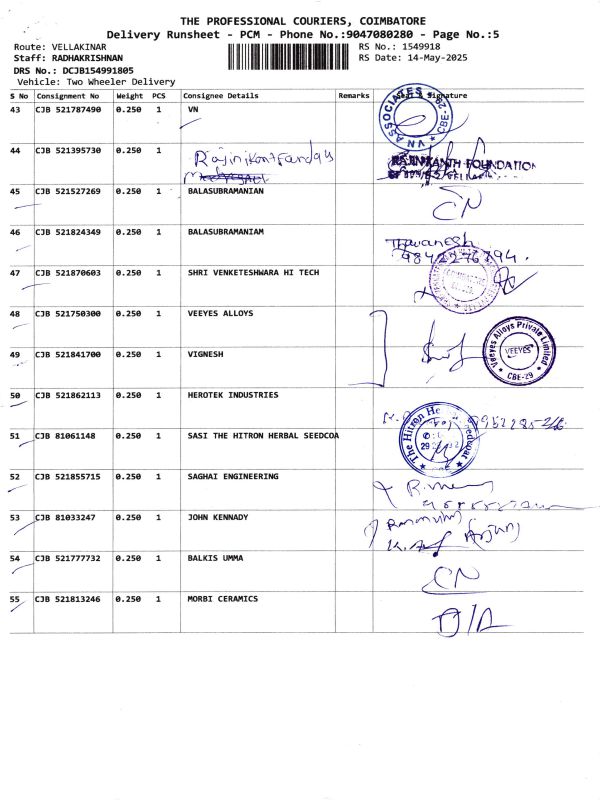 THE PROFESSIONAL COURIERS, COIMBATORE
Delivery Runsheet - PCM - Phone No.:9047080280 - Page No.:5
Route: VELLAKINAR RS No.: 1549918
Staff: RADHAKRISHNAN RS Date: 14-May-2025
DRS No.: DCJB154991805
Vehicle: Two Wheeler Delivery
S No Consignment No Weight PCS Consignee Details Remarks Seal & Signature
43 CJB 521787490 0.250 1 VN
VN ASSOCIATES CBE-29
44 CJB 521395730 0.250 1
RAJINIKANTH FOUNDATION
45 CJB 521527269 0.250 1 BALASUBRAMANIAN CN
46 CJB 521824349 0.250 1 BALASUBRAMANIAM
47 CJB 521870603 0.250 1 SHRI VENKETESHWARA HI TECH
48 CJB 521750300 0.250 1 VEEYES ALLOYS
Veeyes Alloys Private Limited
VEEYES
CBE-29
49 CJB 521841700 0.250 1 VIGNESH
50 CJB 521862113 0.250 1 HEROTEK INDUSTRIES
51 CJB 81061148 0.250 1 SASI THE HITRON HERBAL SEEDCOA
The Hitron Herbal Seedcoat
52 CJB 521855715 0.250 1 SAGHAI ENGINEERING
53 CJB 81033247 0.250 1 JOHN KENNADY
54 CJB 521777732 0.250 1 BALKIS UMMA CN
55 CJB 521813246 0.250 1 MORBI CERAMICS D/A